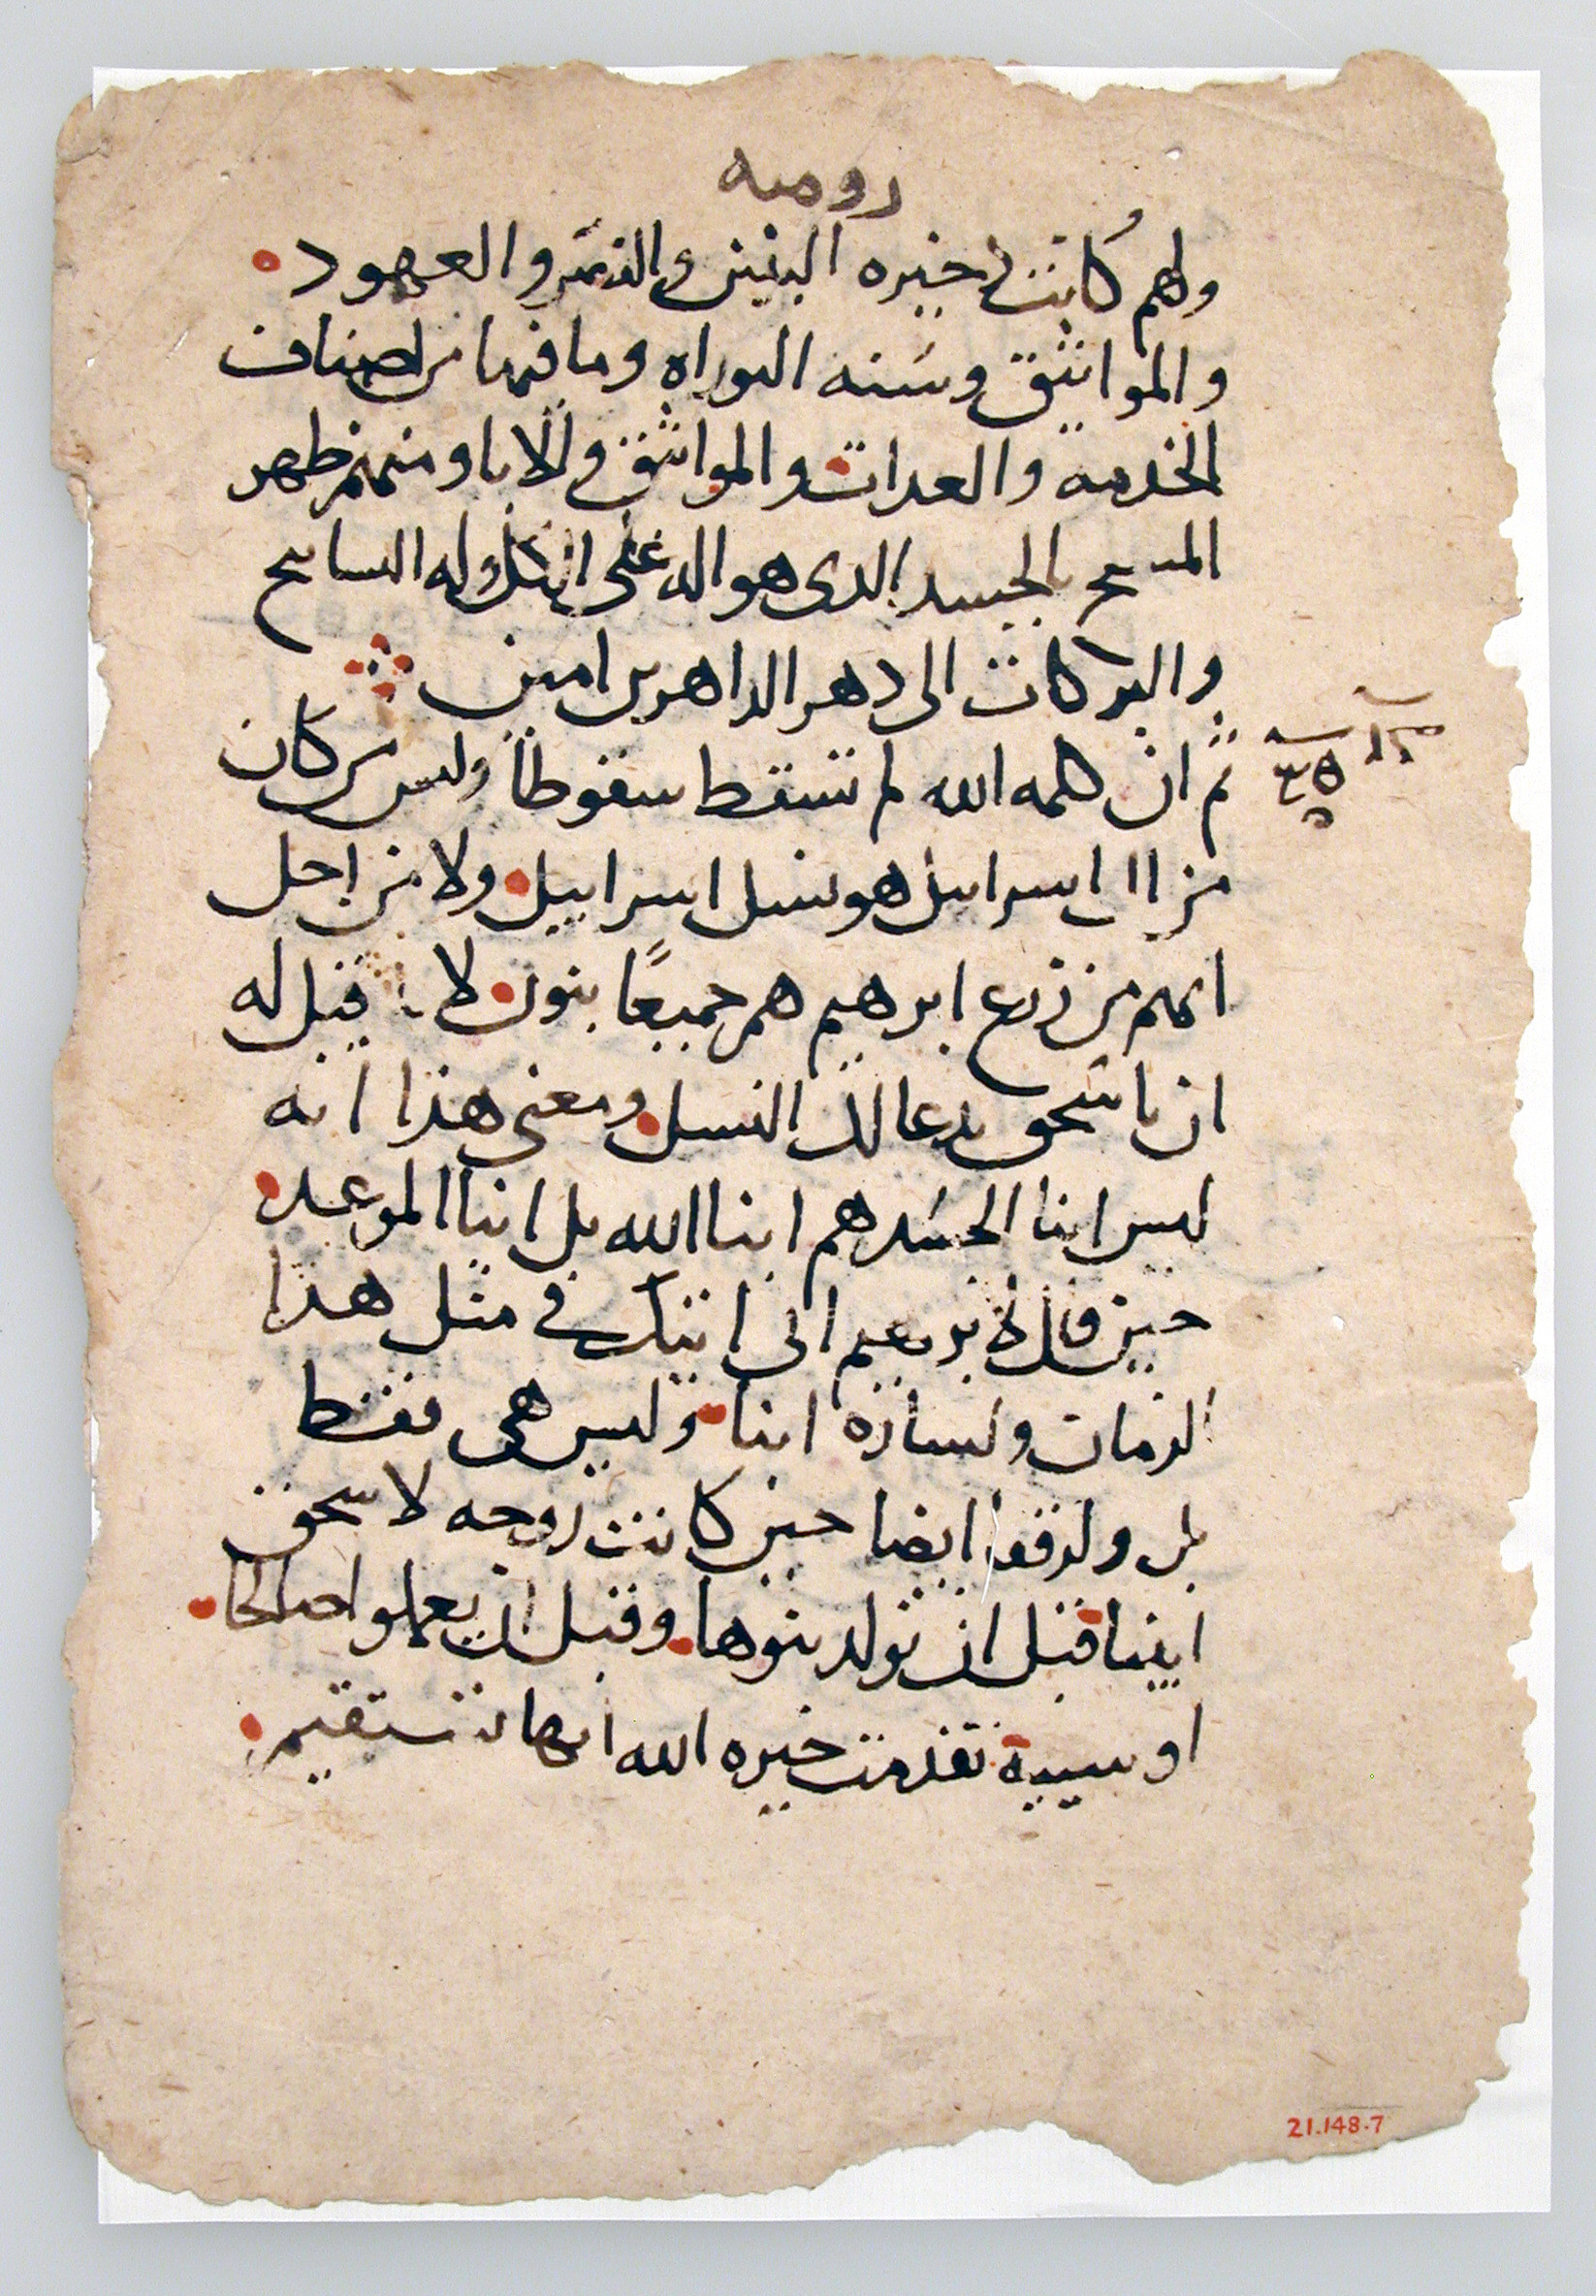 روميه
ولهم كانت خيره البنين والذمم والعهود
والمواثيق وسنه التوراه وما فيها من اصناف
الخدمه والعدات والمواثيق والابا ومنهم ظهر
المسيح بالجسد الدى هو اله على الكل له التسابيح
والبركات الى دهر الداهرين امين
ثم ان كلمه الله لم تسقط سقوطا وليس من كان
من ال اسراييل هو نسل اسراييل ولا من اجل
انهم من زرع ابرهيم هم جميعًا بنون لا قيل له
ان باسحق يدعا لك النسل ومعنى هذا انه
ليس ابنا الجسد هم ابنا الله بل ابنا الموعد
حين قال لابرهيم انى اتيك في مثل هذا
الزمان ولساره ابنا وليس هى فقط
بل ولرفقا ايضا حين كانت زوجه لاسحق
ابينا قبل ان تولد بنوها وقبل ان يعملوا صالحا
او سيية تقدمت خيره الله انها تستقيم
21.148.7